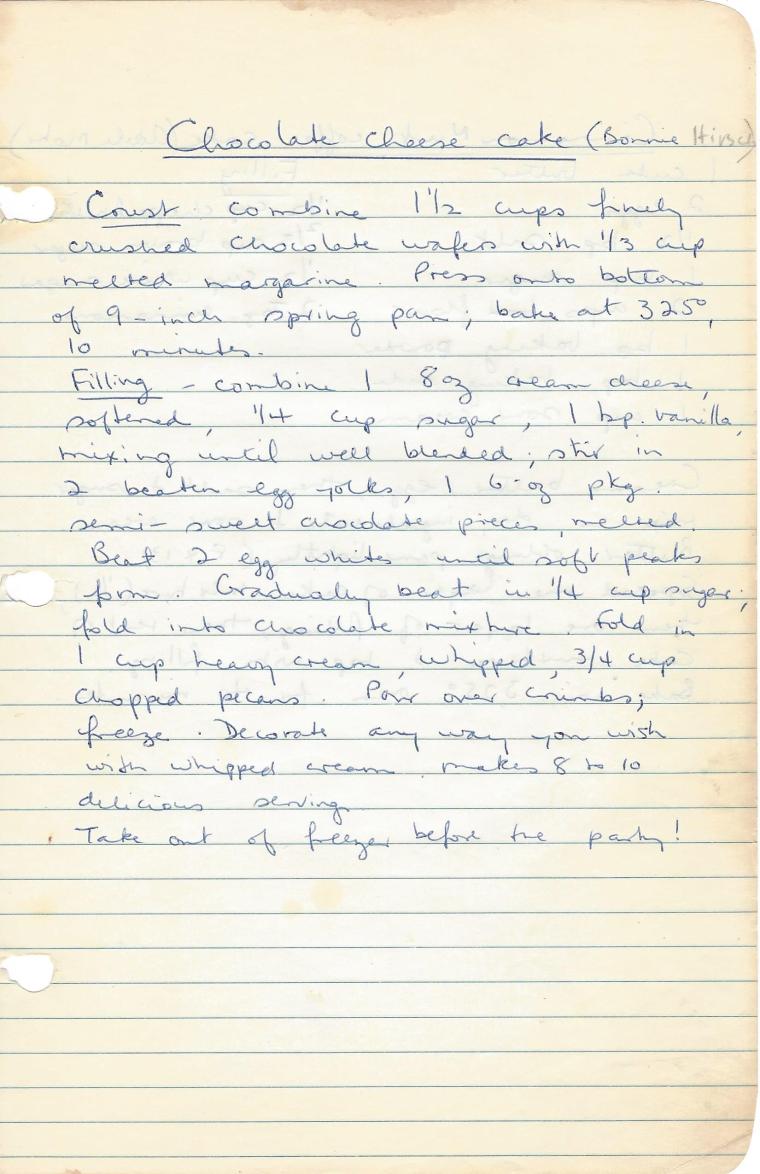 Chocolate cheese cake (Bonnie Hirsch)
Crust. combine 1 1/2 cups finely
crushed chocolate wafers with 1/3 cup
melted margarine. Press onto bottom
of 9-inch spring pan; bake at 325°,
10 minutes.
Filling - combine 1 8oz cream cheese,
softened, 1/4 cup sugar, 1 tsp. vanilla,
mixing until well blended; stir in
2 beaten egg yolks, 1 6-oz pkg.
semi-sweet chocolate pieces, melted.
Beat 2 egg whites until soft peaks
form. Gradually beat in 1/4 cup sugar;
fold into chocolate mixture. Fold in
1 cup heavy cream, whipped, 3/4 cup
chopped pecans. Pour over crumbs;
freeze. Decorate any way you wish
with whipped cream. makes 8 to 10
delicious serving
Take out of freezer before the party!